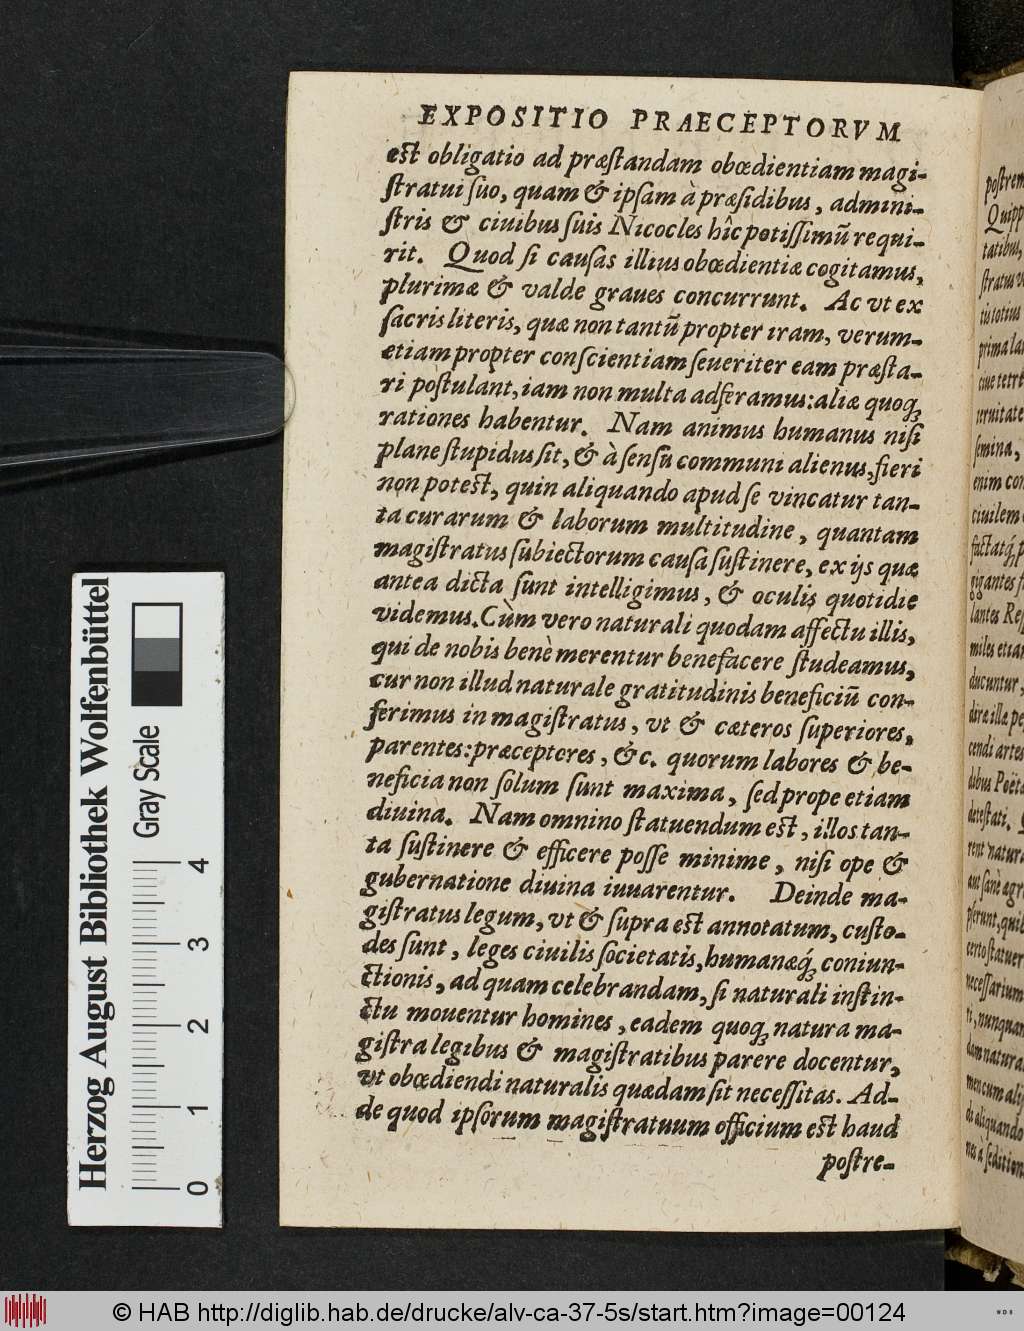 EXPOSITIO PRAECEPTORVM
est obligatio ad præſtandam obœdientiam magi-
ſtratui ſuo, quam & ipſam à præſidibus, admini-
ſtris & ciuibus ſuis Nicocles hîc potiſſimū requi-
rit. Quod ſi cauſas illius obœdientiæ cogitamus,
plurimæ & valde graues concurrunt. Ac vt ex
ſacris literis, quæ non tantū propter iram, verum-
etiam propter conſcientiam ſeueriter eam præſta-
ri poſtulant, iam non multa adferamus: aliæ quoq́ꝫ
rationes habentur. Nam animus humanus niſi
plane ſtupidus ſit, & à ſenſu communi alienus, fieri
non potest, quin aliquando apud ſe vincatur tan-
ta curarum & laborum multitudine, quantam
magiſtratus ſubiectorum cauſa ſuſtinere, ex ijs quæ
antea dicta ſunt intelligimus, & oculis quotidie
videmus. Cùm vero naturali quodam affectu illis,
qui de nobis benè merentur benefacere ſtudeamus,
cur non illud naturale gratitudinis beneficiū con-
ferimus in magiſtratus, vt & cæteros ſuperiores,
parentes: præceptores, &c. quorum labores & be-
neficia non ſolum ſunt maxima, ſed prope etiam
diuina. Nam omnino ſtatuendum est, illos tan-
ta ſuſtinere & efficere poſſe minime, niſi ope &
gubernatione diuina iuuarentur. Deinde ma-
giſtratus legum, vt & ſupra est annotatum, cuſto-
des ſunt, leges ciuilis ſocietatis, humanæq́ꝫ coniun-
ctionis, ad quam celebrandam, ſi naturali inſtin-
ctu mouentur homines, eadem quoq́ꝫ natura ma-
giſtra legibus & magiſtratibus parere docentur,
vt obœdiendi naturalis quædam ſit neceſſitas. Ad-
de quod ipſorum magiſtratuum officium est haud
poſtre-
Herzog August Bibliothek Wolfenbüttel
Gray Scale
0 1 2 3 4
© HAB http://diglib.hab.de/drucke/alv-ca-37-5s/start.htm?image=00124